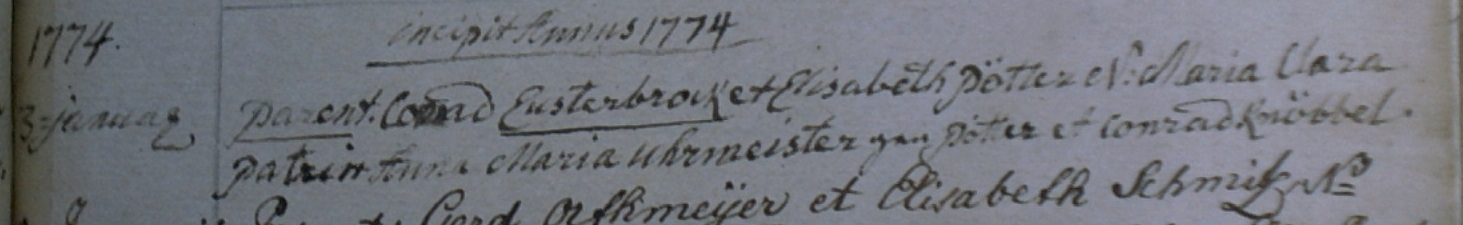 1774. incipit Annus 1774
3 januar parent. Conrad Eusterbrock et Elisabeth Pötter N: Maria Clara
patrin Anna Maria Uhrmeister gnn Pötter et Conrad Knöbbel.
Gerd et Elisabeth Schmitz No